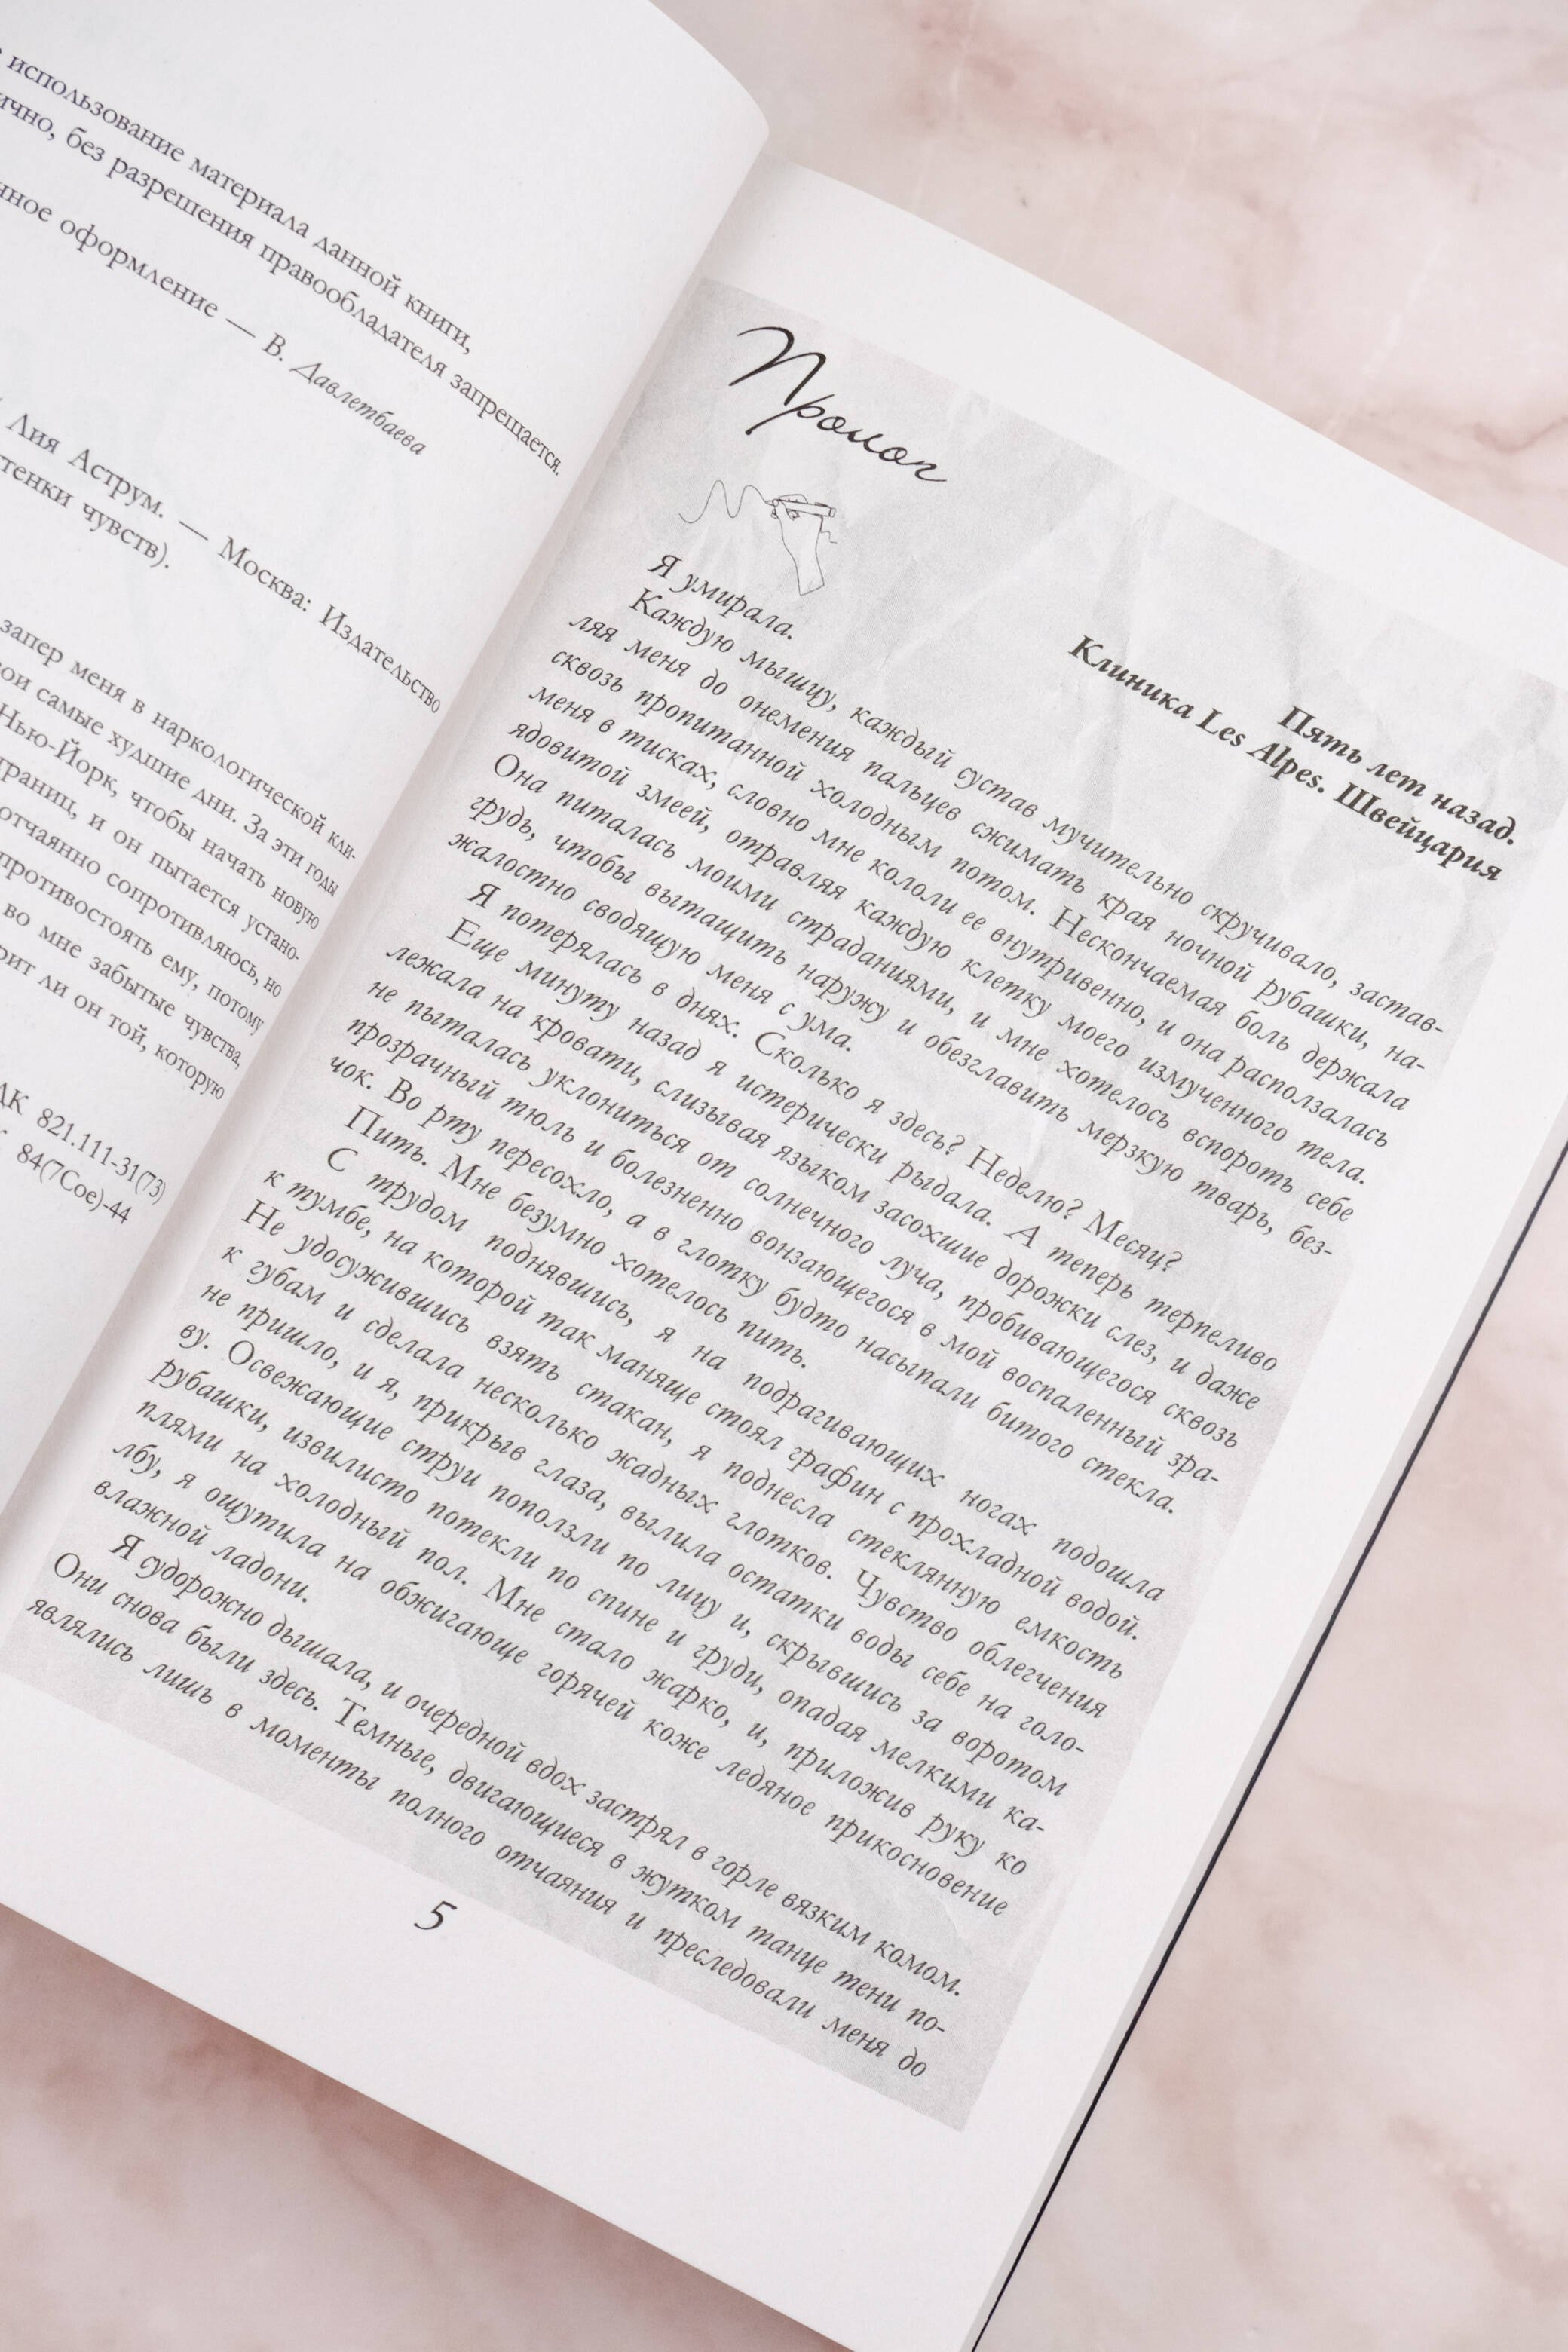 использование материала данной книги,
без разрешения правообладателя запрещается.
оформление — В. Давлетбаева
Лия Аструм. — Москва: Издательство
чувств).
запер меня в наркологической кли-
самые худшие дни. За эти годы
Нью-Йорк, чтобы начать новую
и он пытается устано-
отчаянно сопротивляюсь, но
противостоять ему, потому
во мне забытые чувства,
ли он той, которую
821.111-31(73)
84(7Сое)-44
Пролог
Пять лет назад.
Клиника Les Alpes. Швейцария
Я умирала.
Каждую мышцу, каждый сустав мучительно скручивало, застав-
ляя меня до онемения пальцев сжимать края ночной рубашки, на-
сквозь пропитанной холодным потом. Нескончаемая боль держала
меня в тисках, словно мне кололи ее внутривенно, и она расползалась
ядовитой змеей, отравляя каждую клетку моего измученного тела.
Она питалась моими страданиями, и мне хотелось вспороть себе
грудь, чтобы вытащить наружу и обезглавить мерзкую тварь, без-
жалостно сводящую меня с ума.
Я потерялась в днях. Сколько я здесь? Неделю? Месяц?
Еще минуту назад я истерически рыдала. А теперь терпеливо
лежала на кровати, слизывая языком засохшие дорожки слез, и даже
не пыталась уклониться от солнечного луча, пробивающегося сквозь
прозрачный тюль и болезненно вонзающегося в мой воспаленный зра-
чок. Во рту пересохло, а в глотку будто насыпали битого стекла.
Пить. Мне безумно хотелось пить.
С трудом поднявшись, я на подрагивающих ногах подошла
к тумбе, на которой так маняще стоял графин с прохладной водой.
Не удосужившись взять стакан, я поднесла стеклянную емкость
к губам и сделала несколько жадных глотков. Чувство облегчения
не пришло, и я, прикрыв глаза, вылила остатки воды себе на голо-
ву. Освежающие струи поползли по лицу и, скрывшись за воротом
рубашки, извилисто потекли по спине и груди, опадая мелкими ка-
плями на холодный пол. Мне стало жарко, и, приложив руку ко
лбу, я ощутила на обжигающе горячей коже ледяное прикосновение
влажной ладони.
Я судорожно дышала, и очередной вдох застрял в горле вязким комом.
Они снова были здесь. Темные, двигающиеся в жутком танце тени по-
являлись лишь в моменты полного отчаяния и преследовали меня до
5